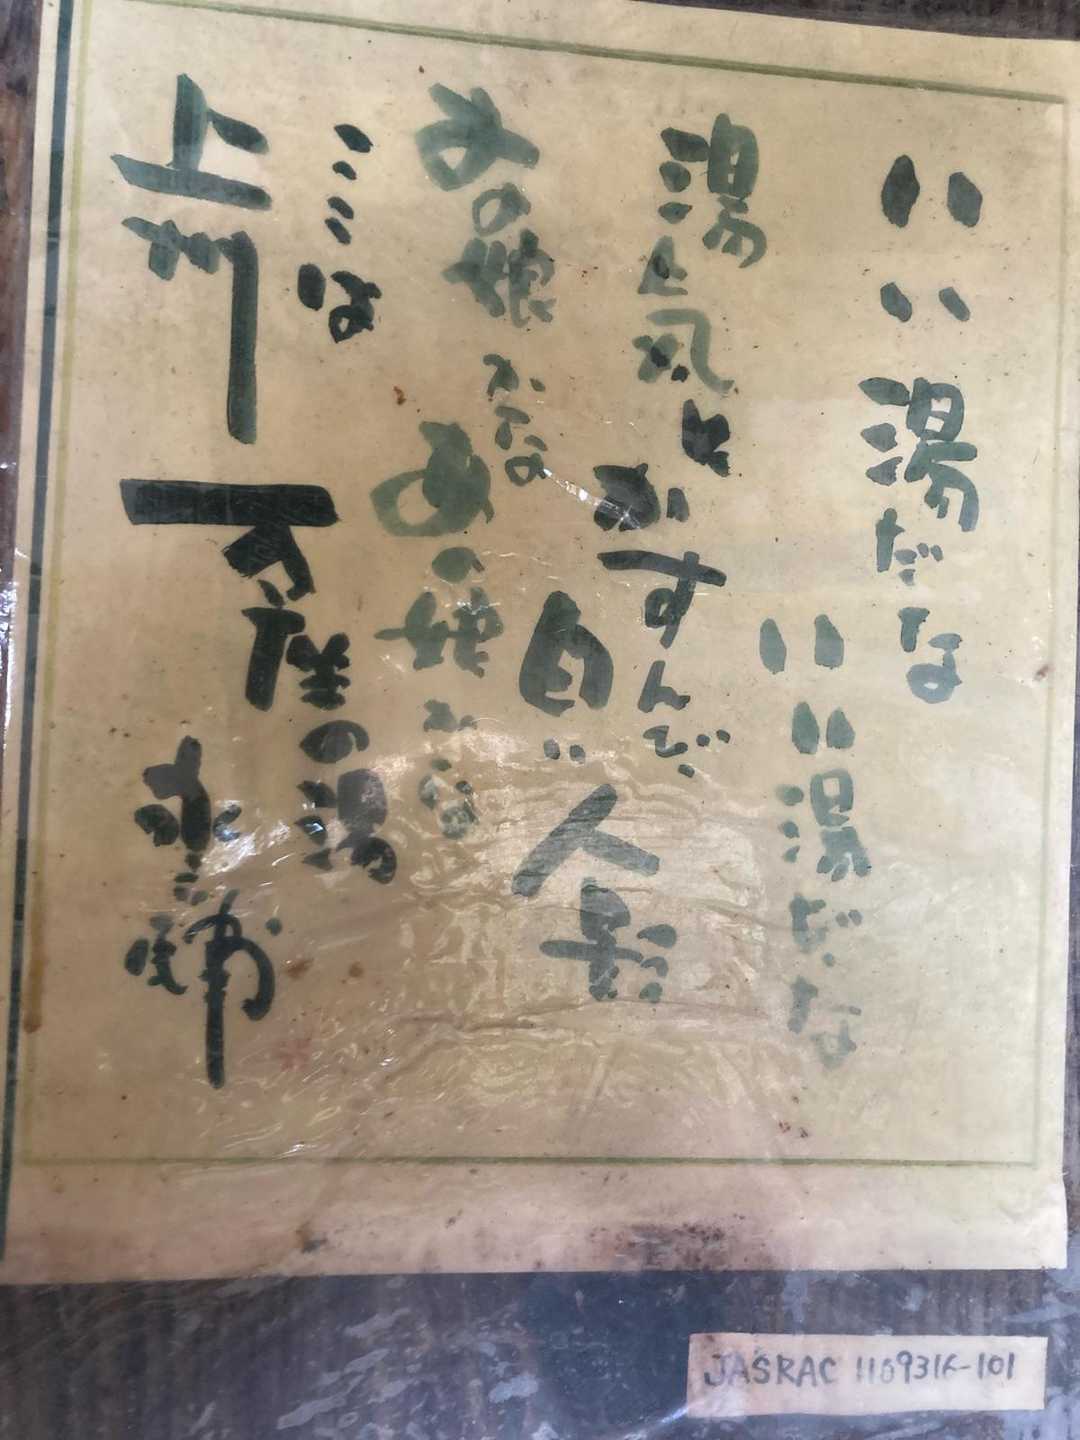 いい湯だな
いい湯だな
湯気と
かすんで、
白い人影
あの娘かな
あの娘かな
ここは
上州
万座の湯
永六輔
JASRAC 1109316-101